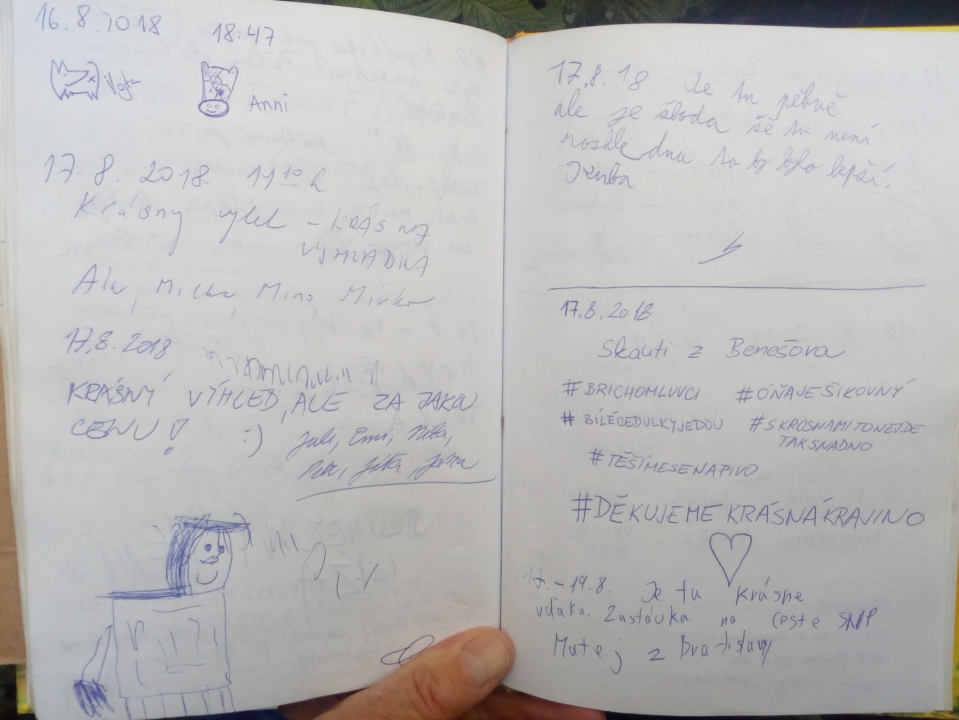 16.8.2018 18:47
Vojta
Anni
17 8. 2018 11¹⁰ h
Krásny výlet – KRÁSNA
VYHLÁDKA
Ala, Milka, Mino, Mirka
17.8.2018
KRÁSNÝ VÝHLED, ALE ZA JAKOU
CENU! :) Juli, Emi,
Jitka, Jára
17.8.18 Je tu pěkně
ale je škoda še tu není
rozhledna to by bylo lepší.
Jakuba
17.8.2018
Skauti z Benešova
#BRICHOMLUVCI #OŇAJEŠIKOVNÝ
#BÍLÉCEDULKYJEDOU #SKROSNAMITONEJDE
TAKSNADNO
#TĚŠÍMESENAPIVO
#DĚKUJEMEKRÁSNÁKRAJINO
17.–19.8. Je tu krásne
vďaka. Zastávka na ceste SNP
Matej z Bratislavy